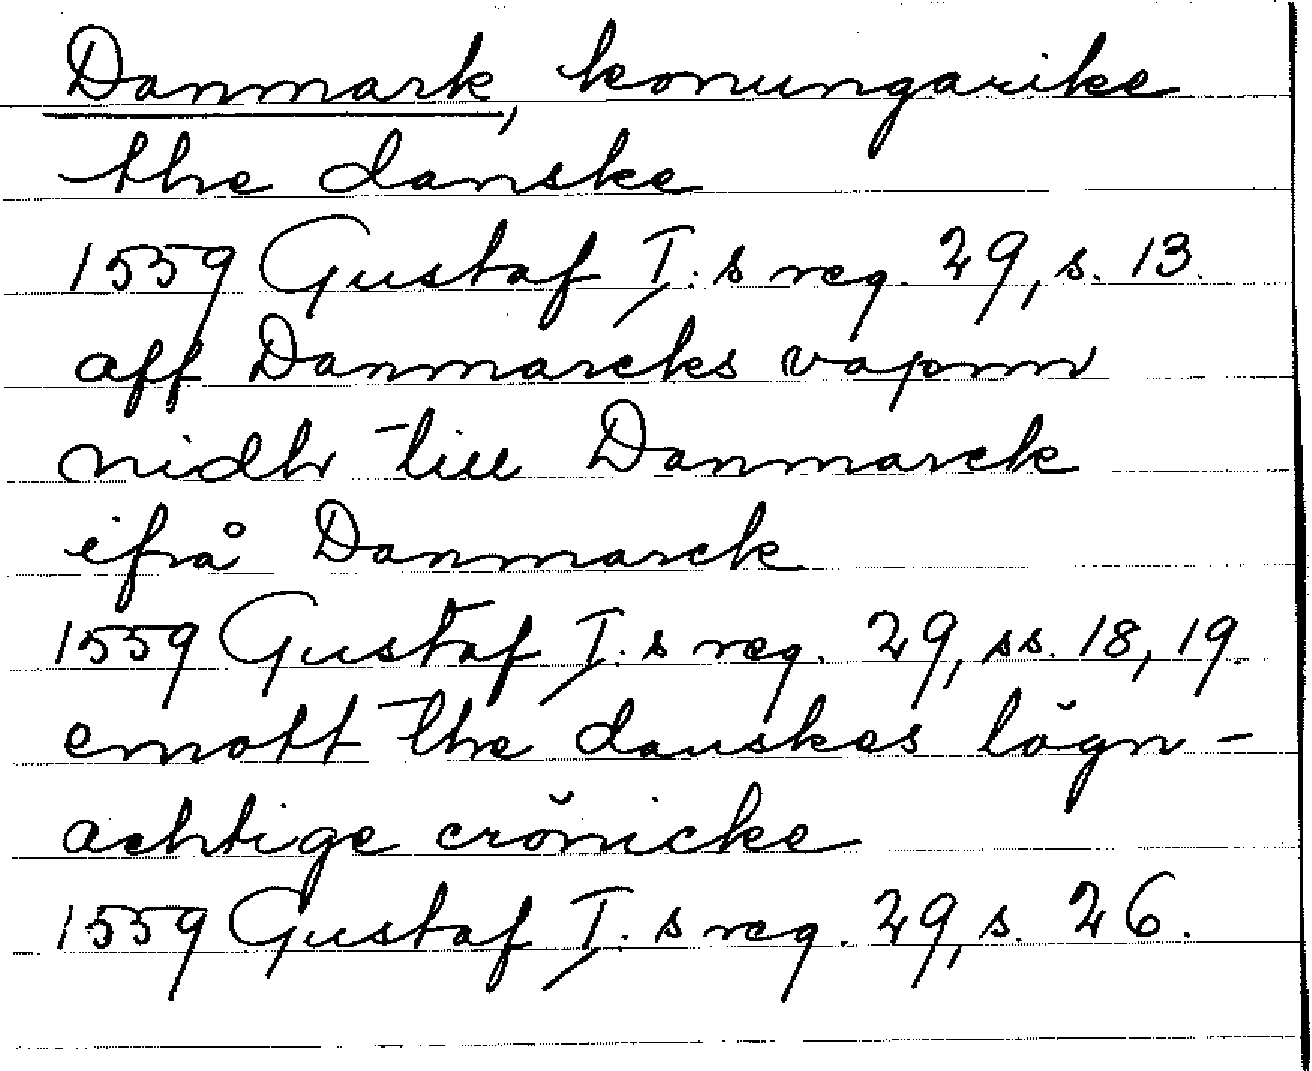 Danmark, konungarike
the danske
1559 Gustaf I:s reg. 29, s. 13.
aff Danmarcks vapnn
nidh till Danmarck
ifrå Danmarck
1559 Gustaf I:s reg. 29, ss. 18, 19.
emott the danskes lögn-
achtige crönicke
1559 Gustaf I:s reg. 29, s. 26.